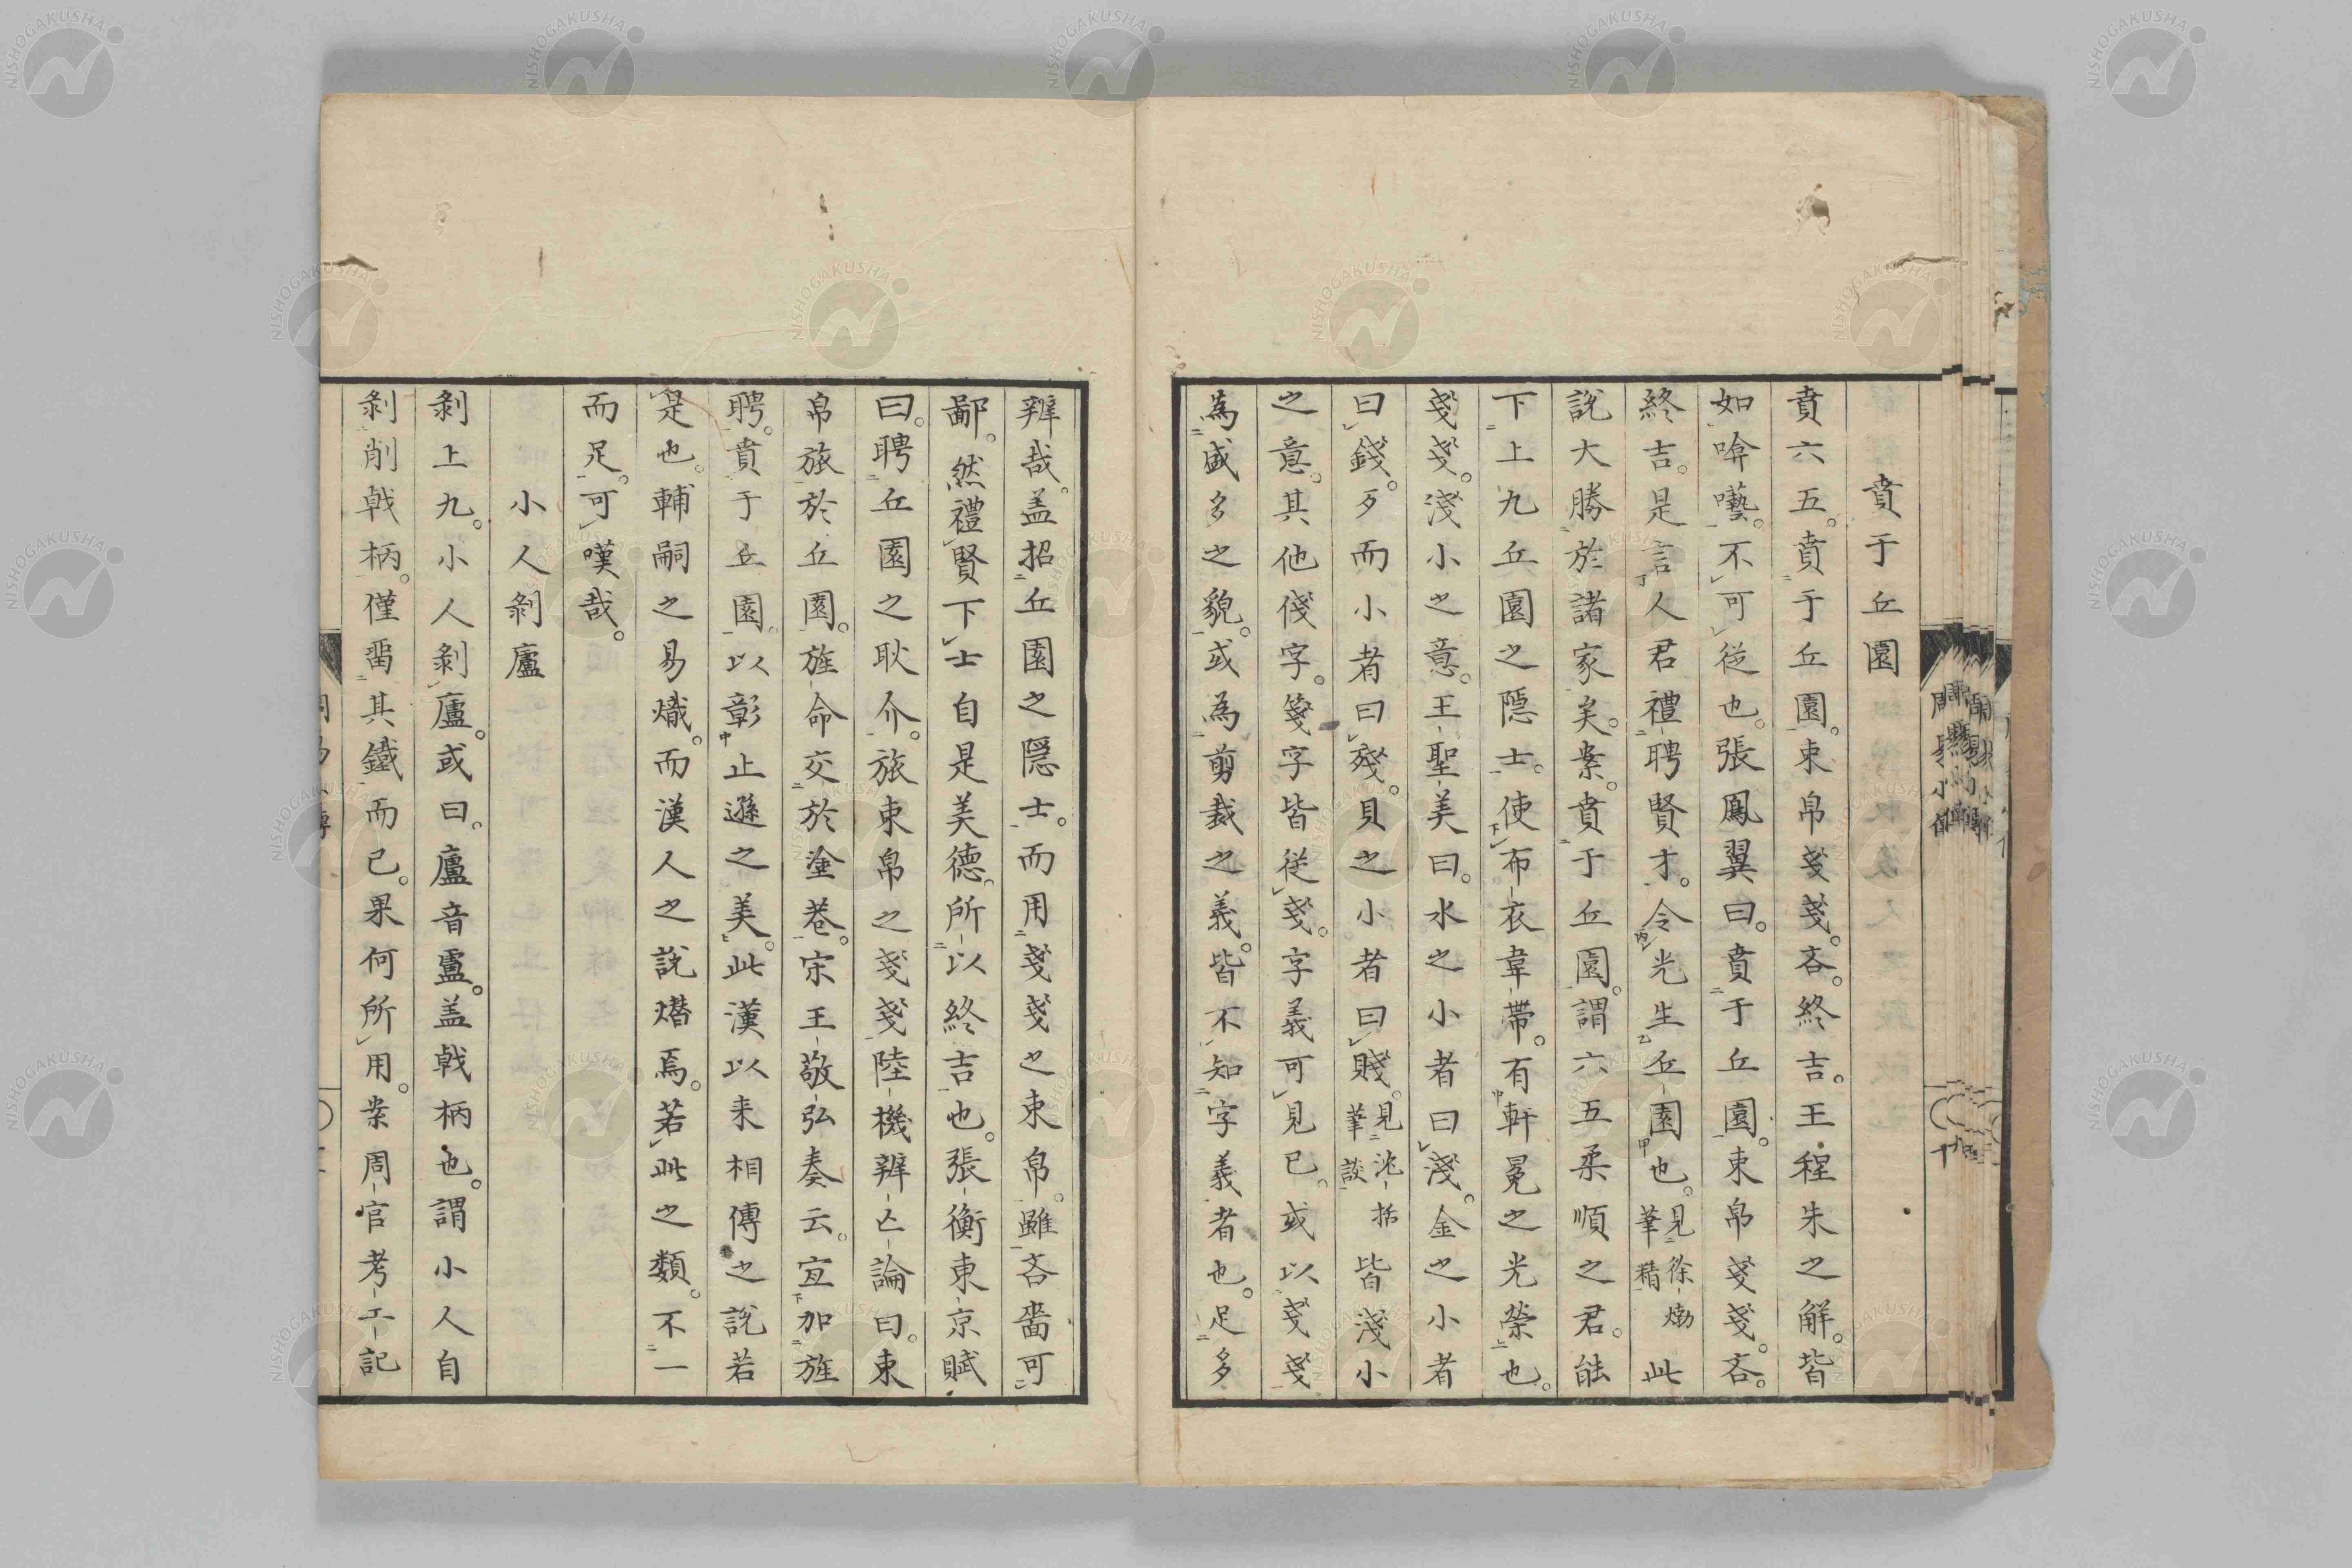 賁于丘園
賁六五。賁于丘園。束帛戔戔。吝。終吉。王程朱之解。皆
如唅囈。不可從也。張鳳翼曰。賁于丘園。束帛戔戔。吝。
終吉。是言人君禮聘賢才。令光生丘園也。見徐𤊹筆精此
說大勝於諸家矣。案。賁于丘園。謂六五柔順之君。能
下上九丘園之隱士。使布衣韋帶。有軒冕之光榮也。
戔戔。淺小之意。王聖美曰。水之小者曰淺。金之小者
曰錢。歹而小者曰殘。貝之小者曰賤。見沈括筆談皆淺小
之意。其他俴字。箋字皆從戔。字義可見已。或以戔戔
為盛多之貌。或為剪裁之義。皆不知字義者也。足多
辨哉。盖招丘園之隱士。而用戔戔之束帛。雖吝嗇可
鄙。然禮賢下士自是美德。所以終吉也。張衡東京賦
曰。聘丘園之耿介。旅束帛之戔戔陸機辨亡論曰。束
帛旅於丘園。旌命交於塗巷。宋王敬弘奏云。宜加旌
聘。賁于丘園。以彰止遜之美。此漢以来相傳之說若
是也。輔嗣之易熾。而漢人之說熸焉。若此之類。不一
而足。可嘆哉。
小人剝廬
剝上九。小人剝廬。或曰。廬音盧。盖戟柄也。謂小人自
剝削戟柄。僅畱其鐵而已。果何所用。案周官考工記